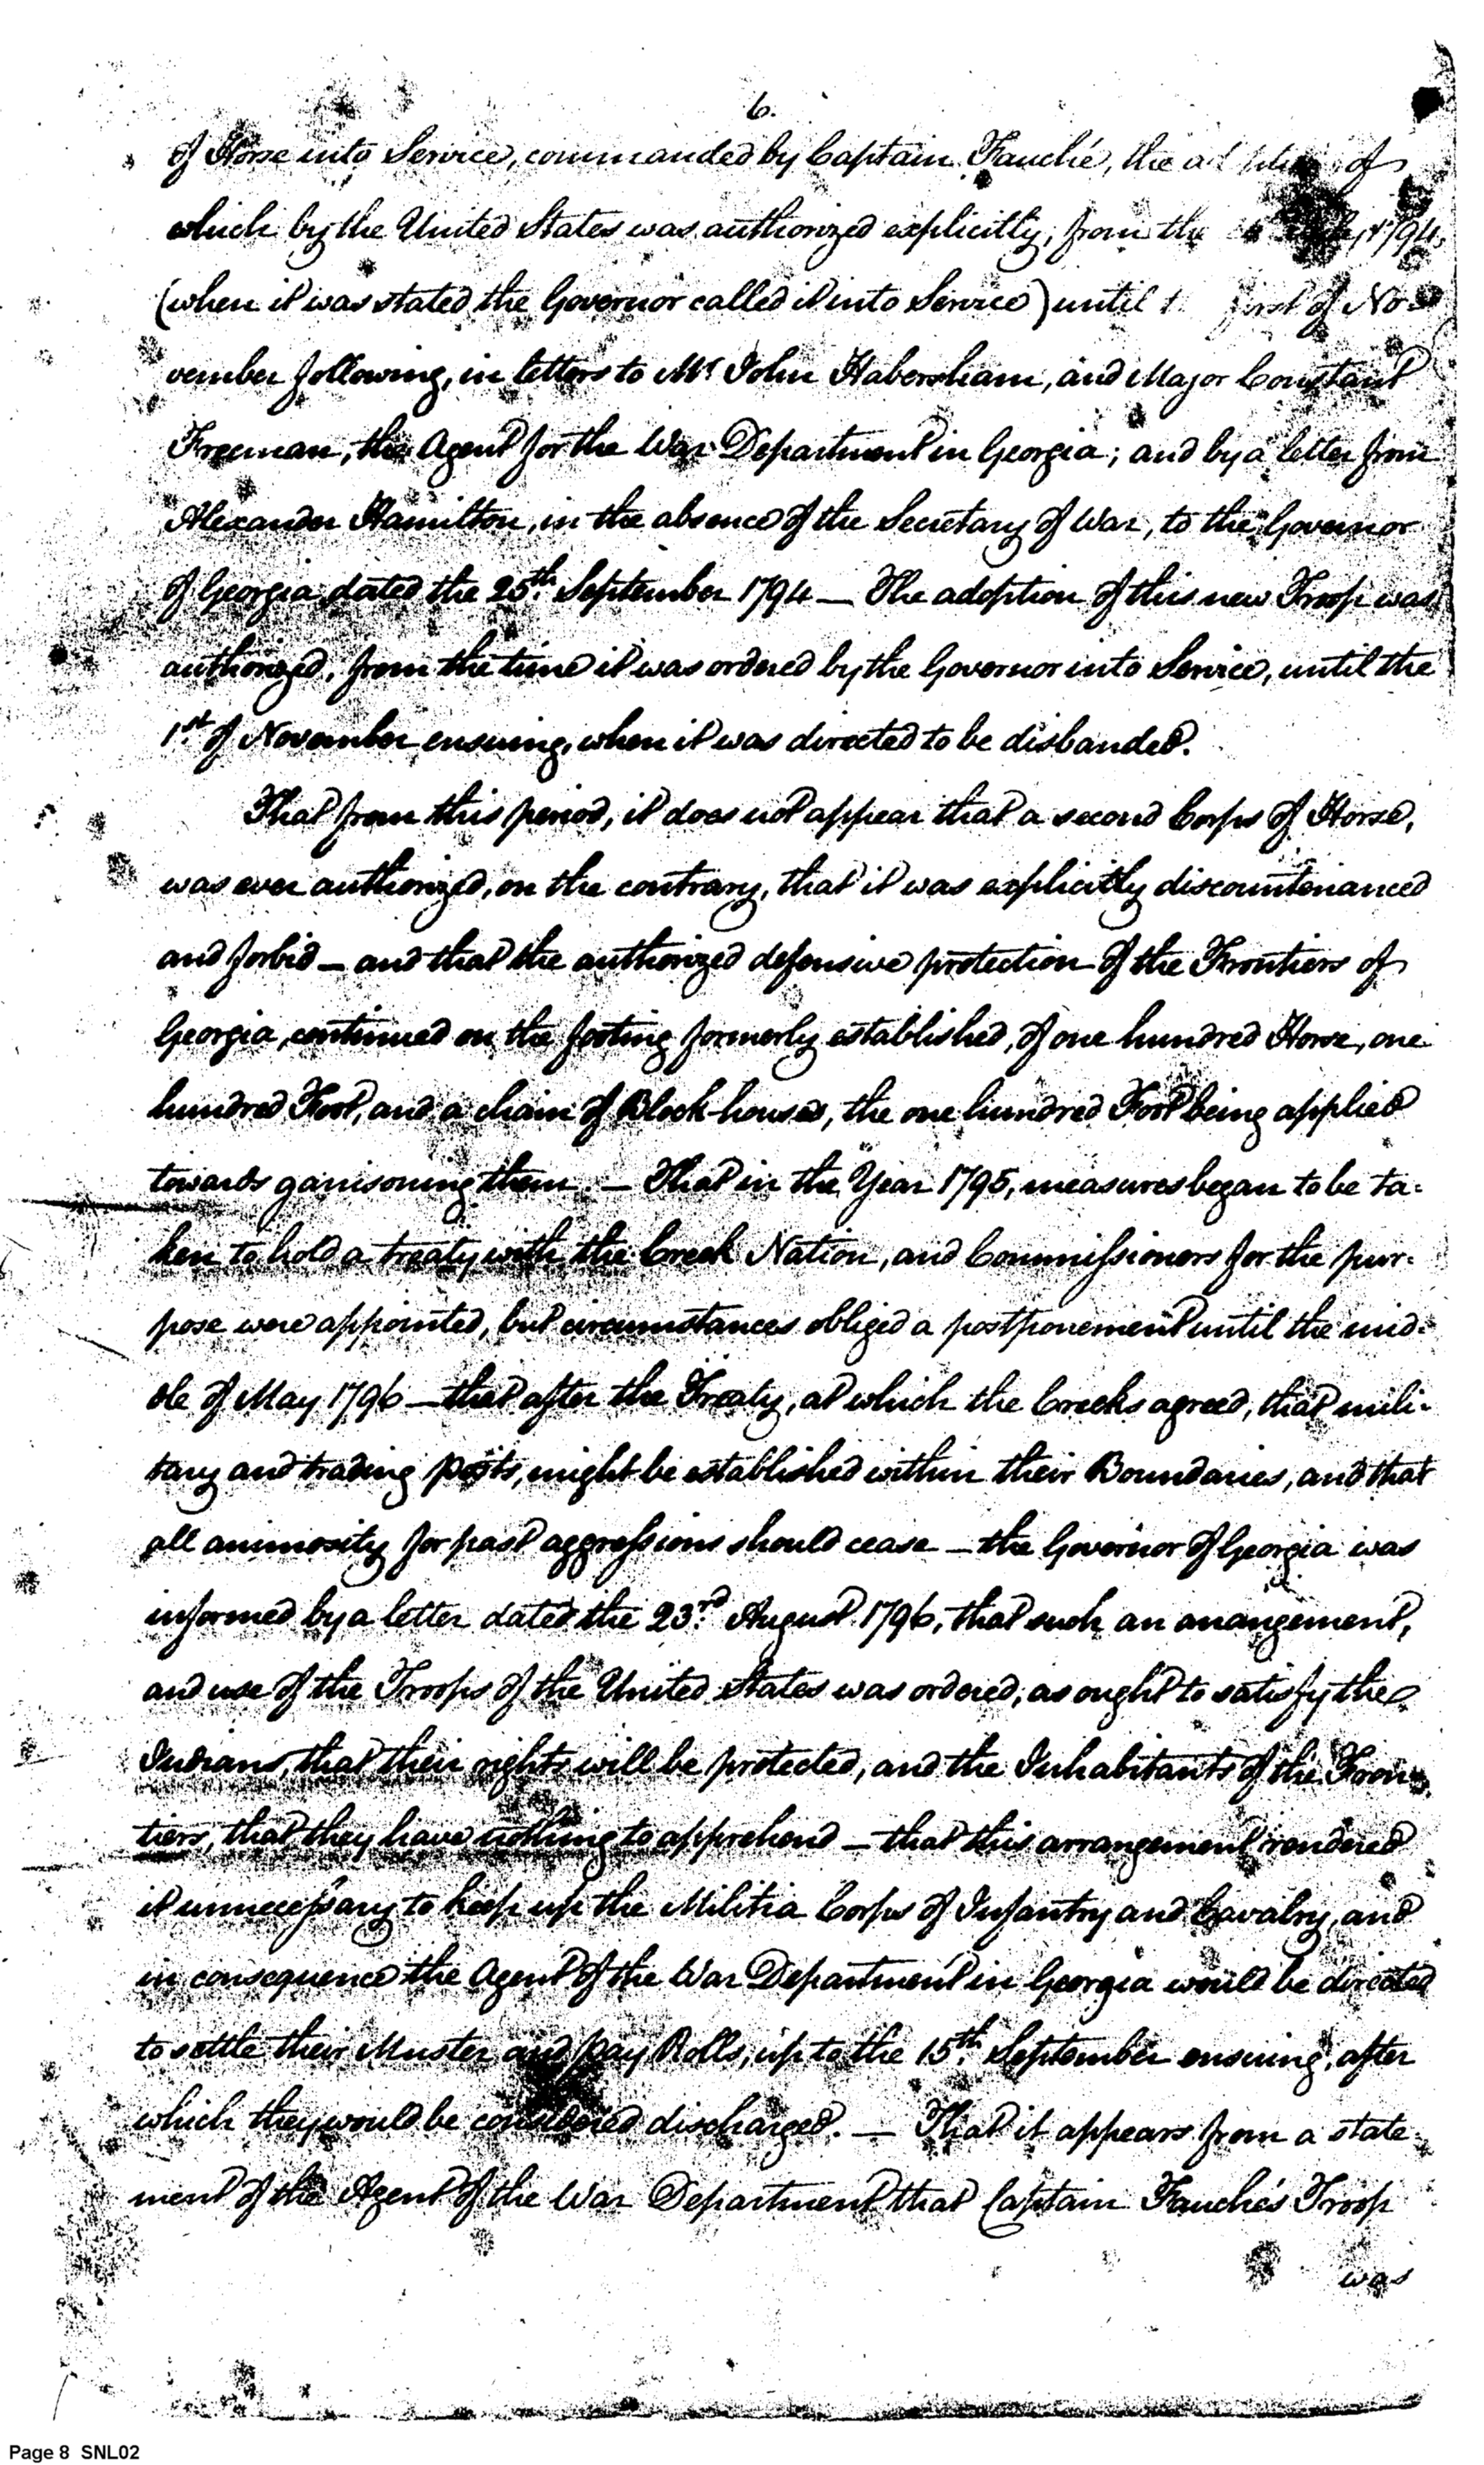 6.
of Horse into Service, commanded by Captain Fauché, the of
which by the United States was authorized explicitly, from the 1794,
(when it was stated the Governor called it into Service) until first of No-
vember following, in letters to Mr. John Habersham, and Major Constant
Freeman, the Agent for the War Department in Georgia; and by a letter from
Alexander Hamilton, in the absence of the Secretary of War, to the Governor
of Georgia dated the 25th. September 1794 — The adoption of this new Troop was
authorized, from the time it was ordered by the Governor into Service, until the
1st. of November ensuing, when it was directed to be disbanded.
That from this period, it does not appear that a second Corps of Horse,
was ever authorized, on the contrary, that it was explicitly discountenanced
and forbid — and that the authorized defensive protection of the Frontiers of
Georgia, continued on the footing formerly established, of one hundred Horse, one
hundred Foot, and a chain of Block-houses, the one hundred Foot being applied
towards garrisoning them. — That in the Year 1795, measures began to be ta-
ken to hold a treaty with the Creek Nation, and Commissioners for the pur-
pose were appointed, but circumstances obliged a postponement until the mid-
dle of May 1796 — that after the Treaty, at which the Creeks agreed, that mili-
tary and trading posts, might be established within their Boundaries, and that
all animosity for past aggressions should cease — the Governor of Georgia was
informed by a letter dated the 23rd. August 1796, that such an arrangement,
and use of the Troops of the United States was ordered, as ought to satisfy the
Indians, that their rights will be protected, and the Inhabitants of the Fron-
tiers, that they have nothing to apprehend — that this arrangement rendered
it unnecessary to keep up the Militia Corps of Infantry and Cavalry, and
in consequence the Agent of the War Department in Georgia would be directed
to settle their Muster and pay Rolls, up to the 15th. September ensuing, after
which they would be considered discharged. — That it appears from a state-
ment of the Agent of the War Department that Captain Fauché's Troop
was
Page 8 SNL02